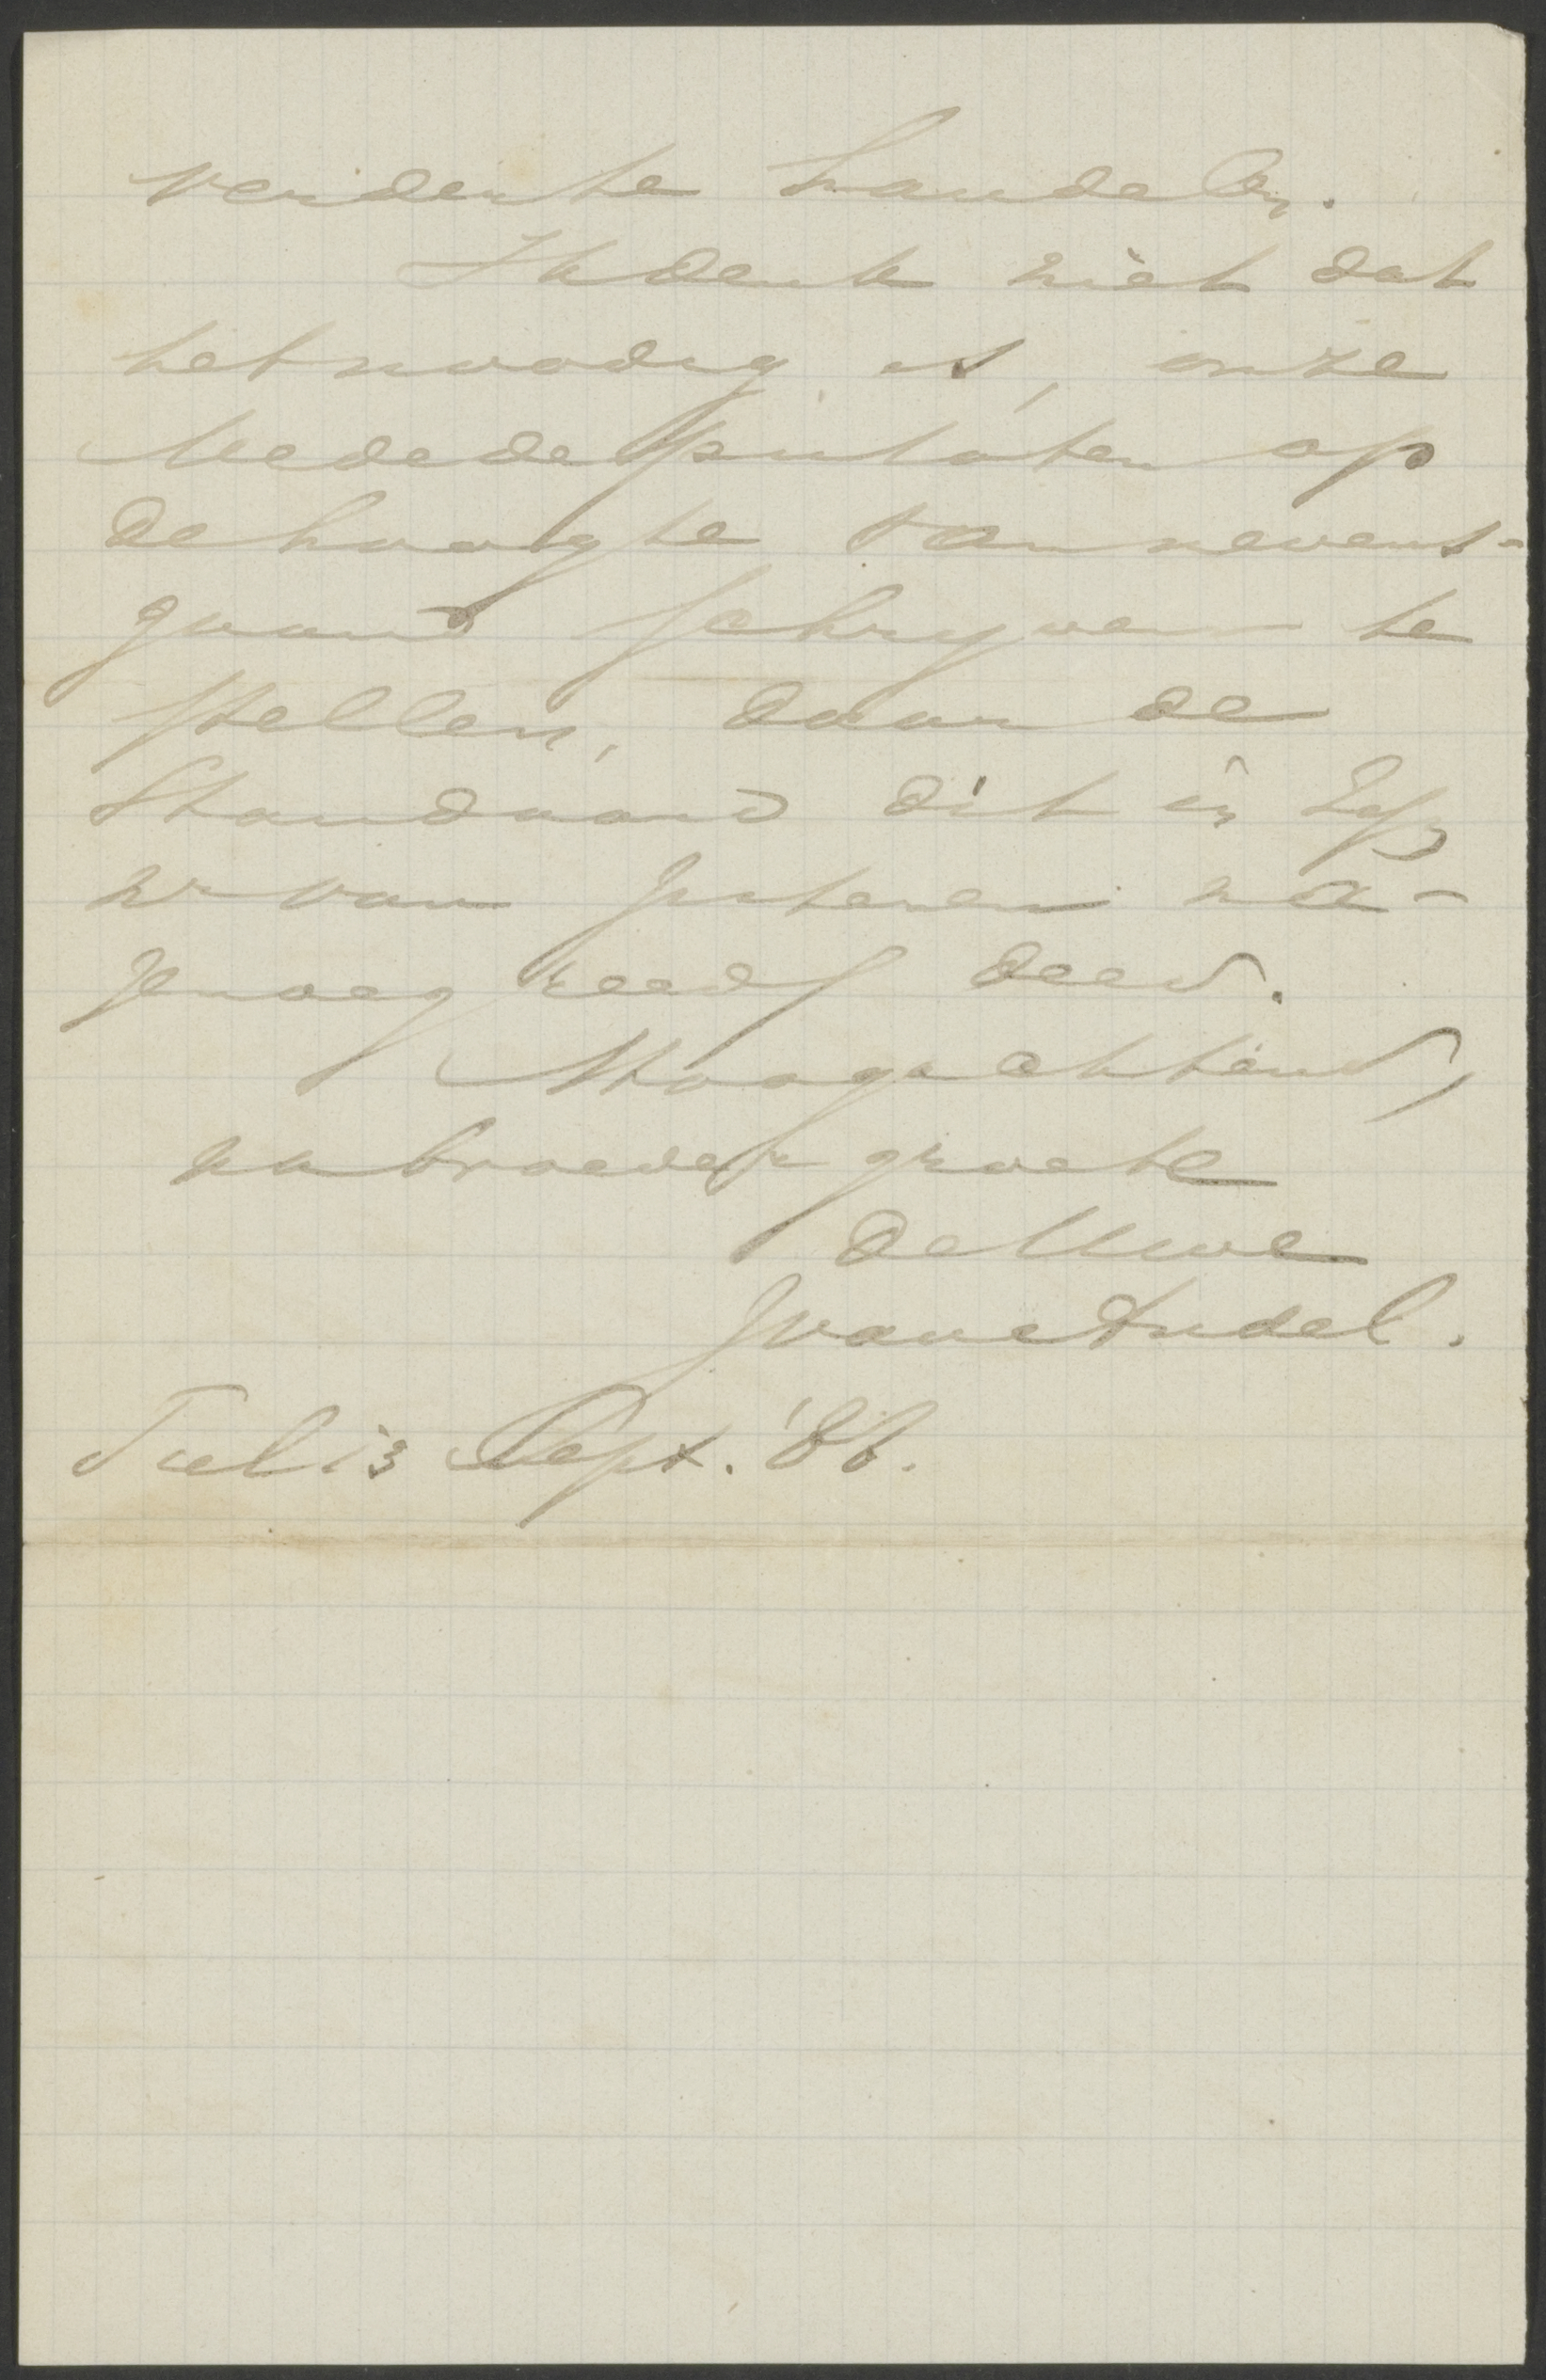 verder te handelen.
Ik denk niet dat
het noodig is, onze
Mededeputaten op
de hoogte van nevens-
gaand schrijven te
stellen, daar de
Standaard dit in zijn
nr van gisteren na-
genoeg reeds deed.
Hoogachtend,
na broedergroete
de Uwe
J van Andel.
Tiel 13 Sept. '86.